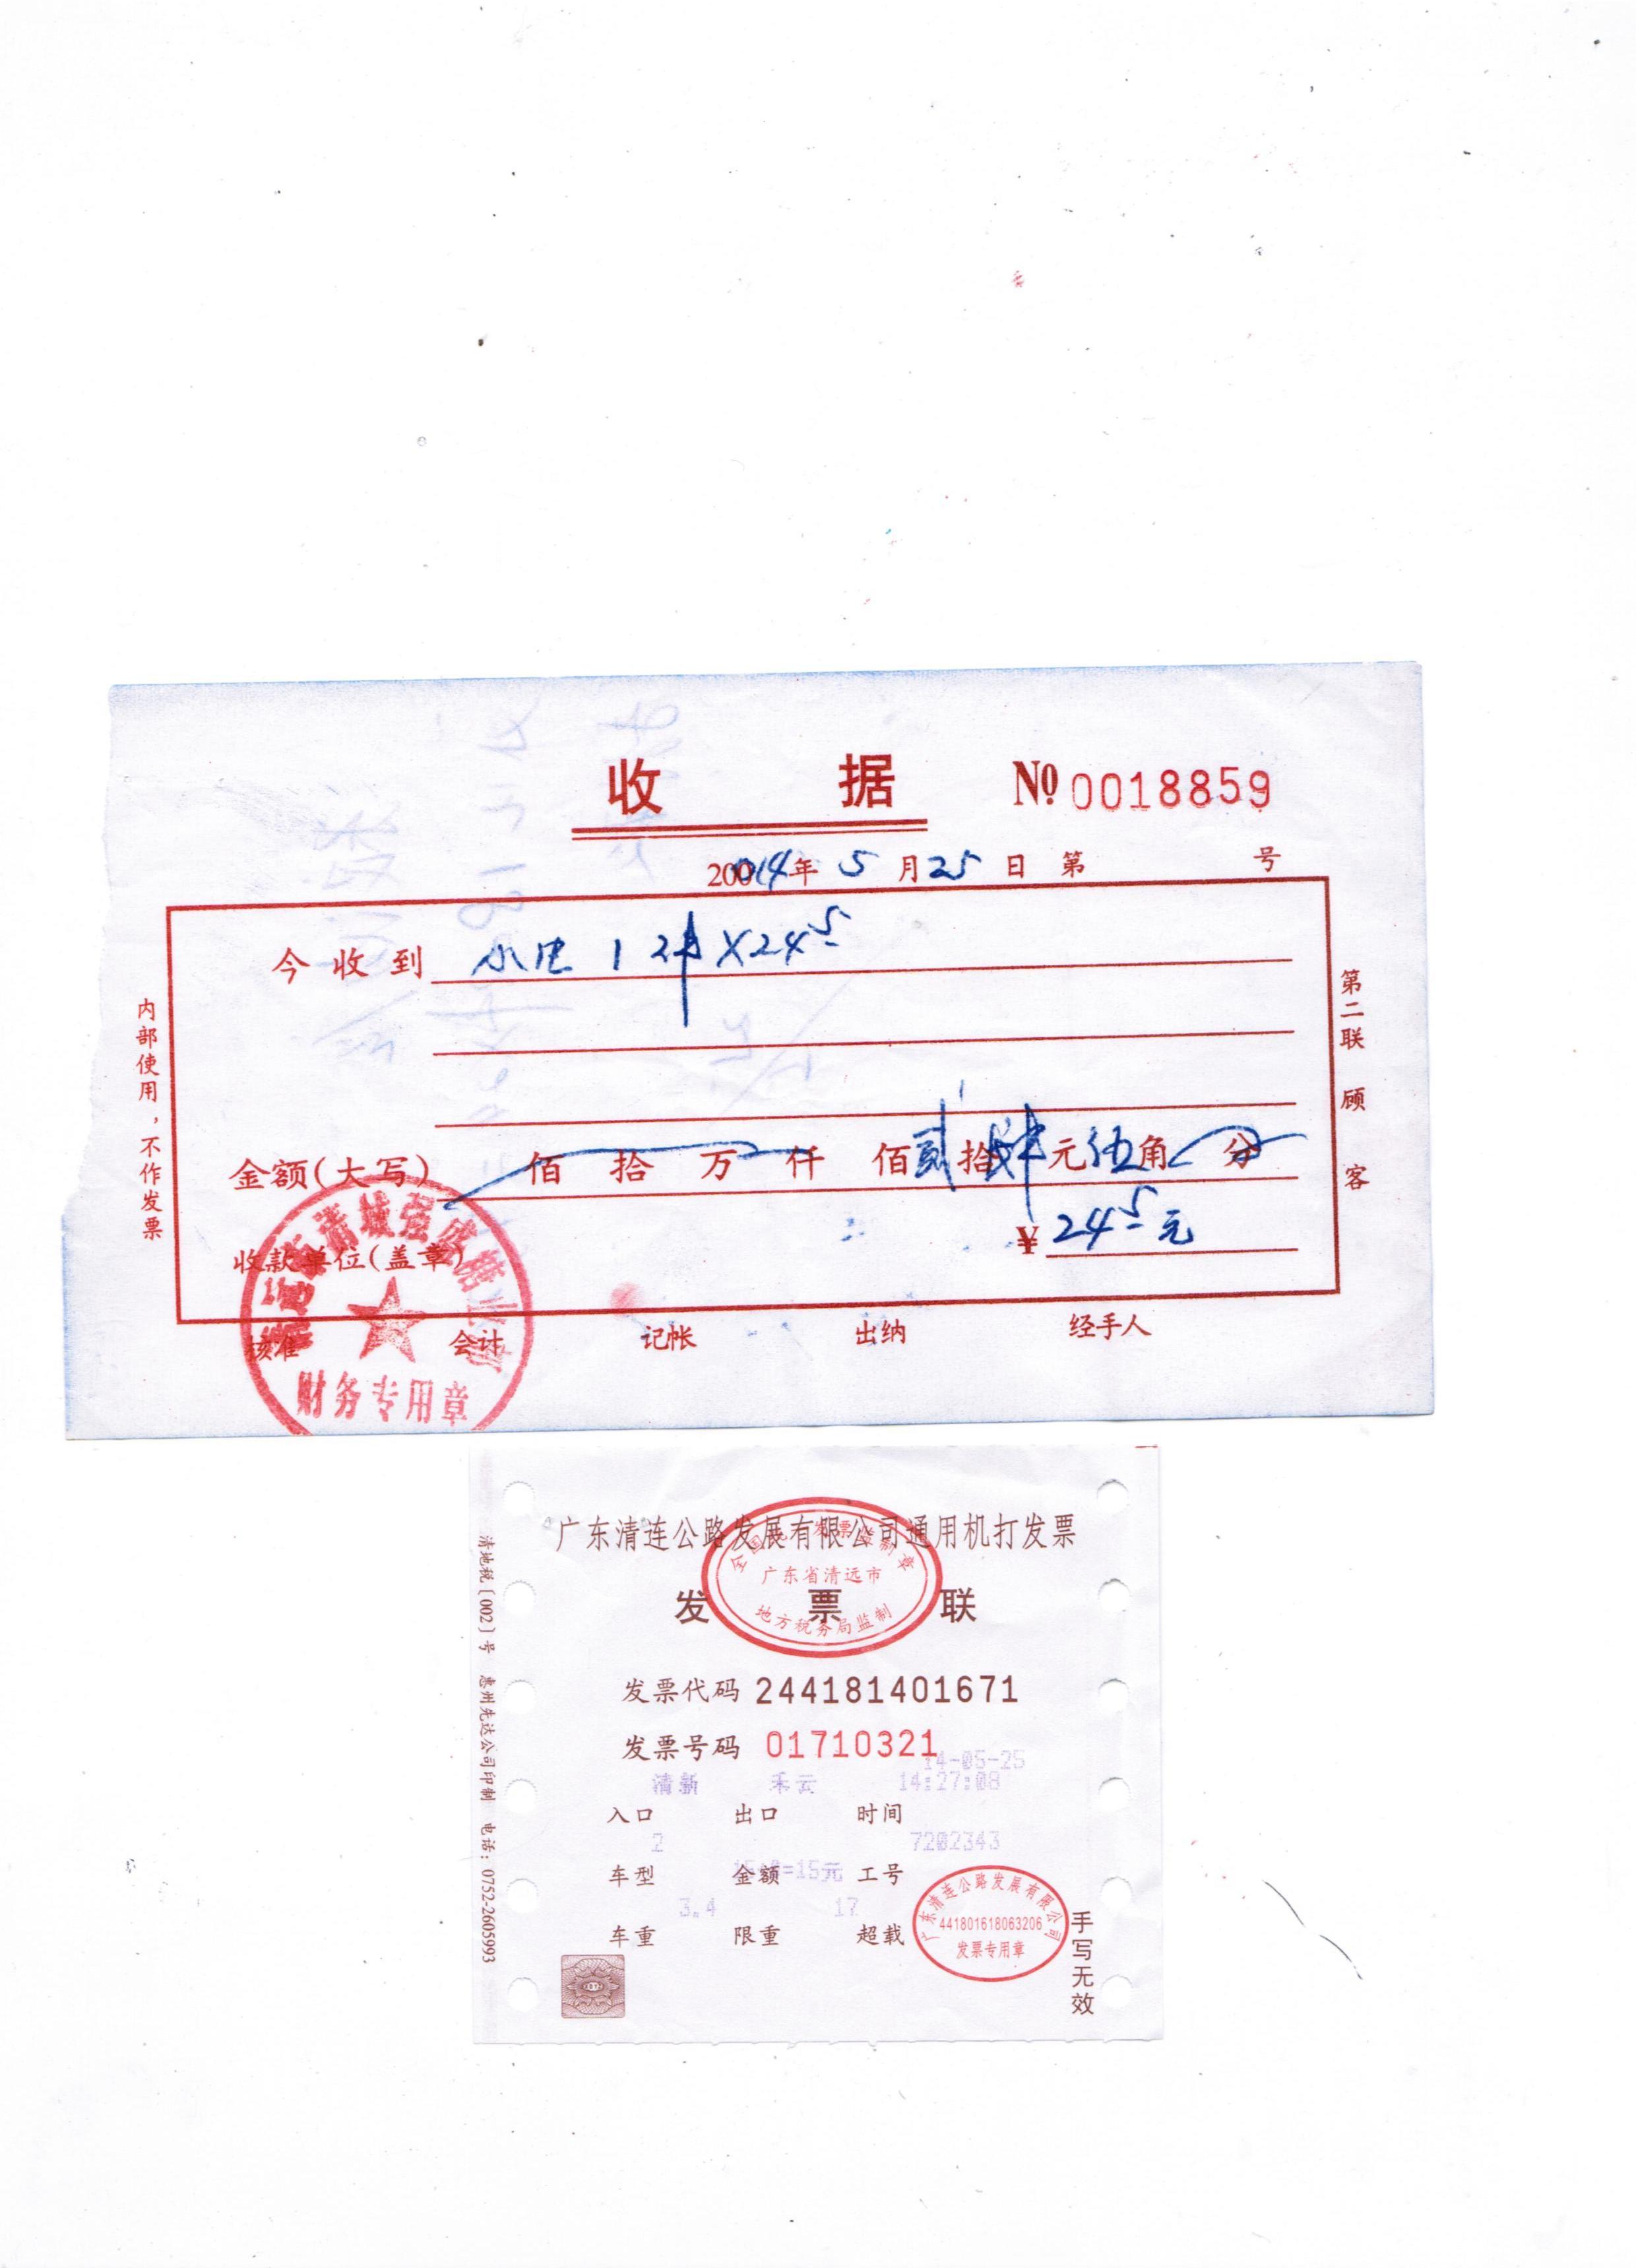 收 据 № 0018859
2014年 5 月 25 日 第 号
今收到 1 件 X24.5
金额(大写) 佰 拾 万 仟 佰 贰 拾 肆 元 伍 角 分
¥ 24.5元
收款单位(盖章)
核准 会计 记帐 出纳 经手人
财务专用章
内部使用,不作发票
第二联 顾客
广东清连公路发展有限公司通用机打发票
全国统一发票监制章
广东省清远市
地方税务局监制
发 票 联
发票代码 244181401671
发票号码 01710321
14-05-25
清新 禾云 14:27:08
入口 出口 时间
2 7202343
车型 金额 =15元 工号
3.4 17
车重 限重 超载
广东清连公路发展有限公司
441801618063206
发票专用章
手写无效
清地税[002]号 惠州先达公司印制 电话:0752-2605993